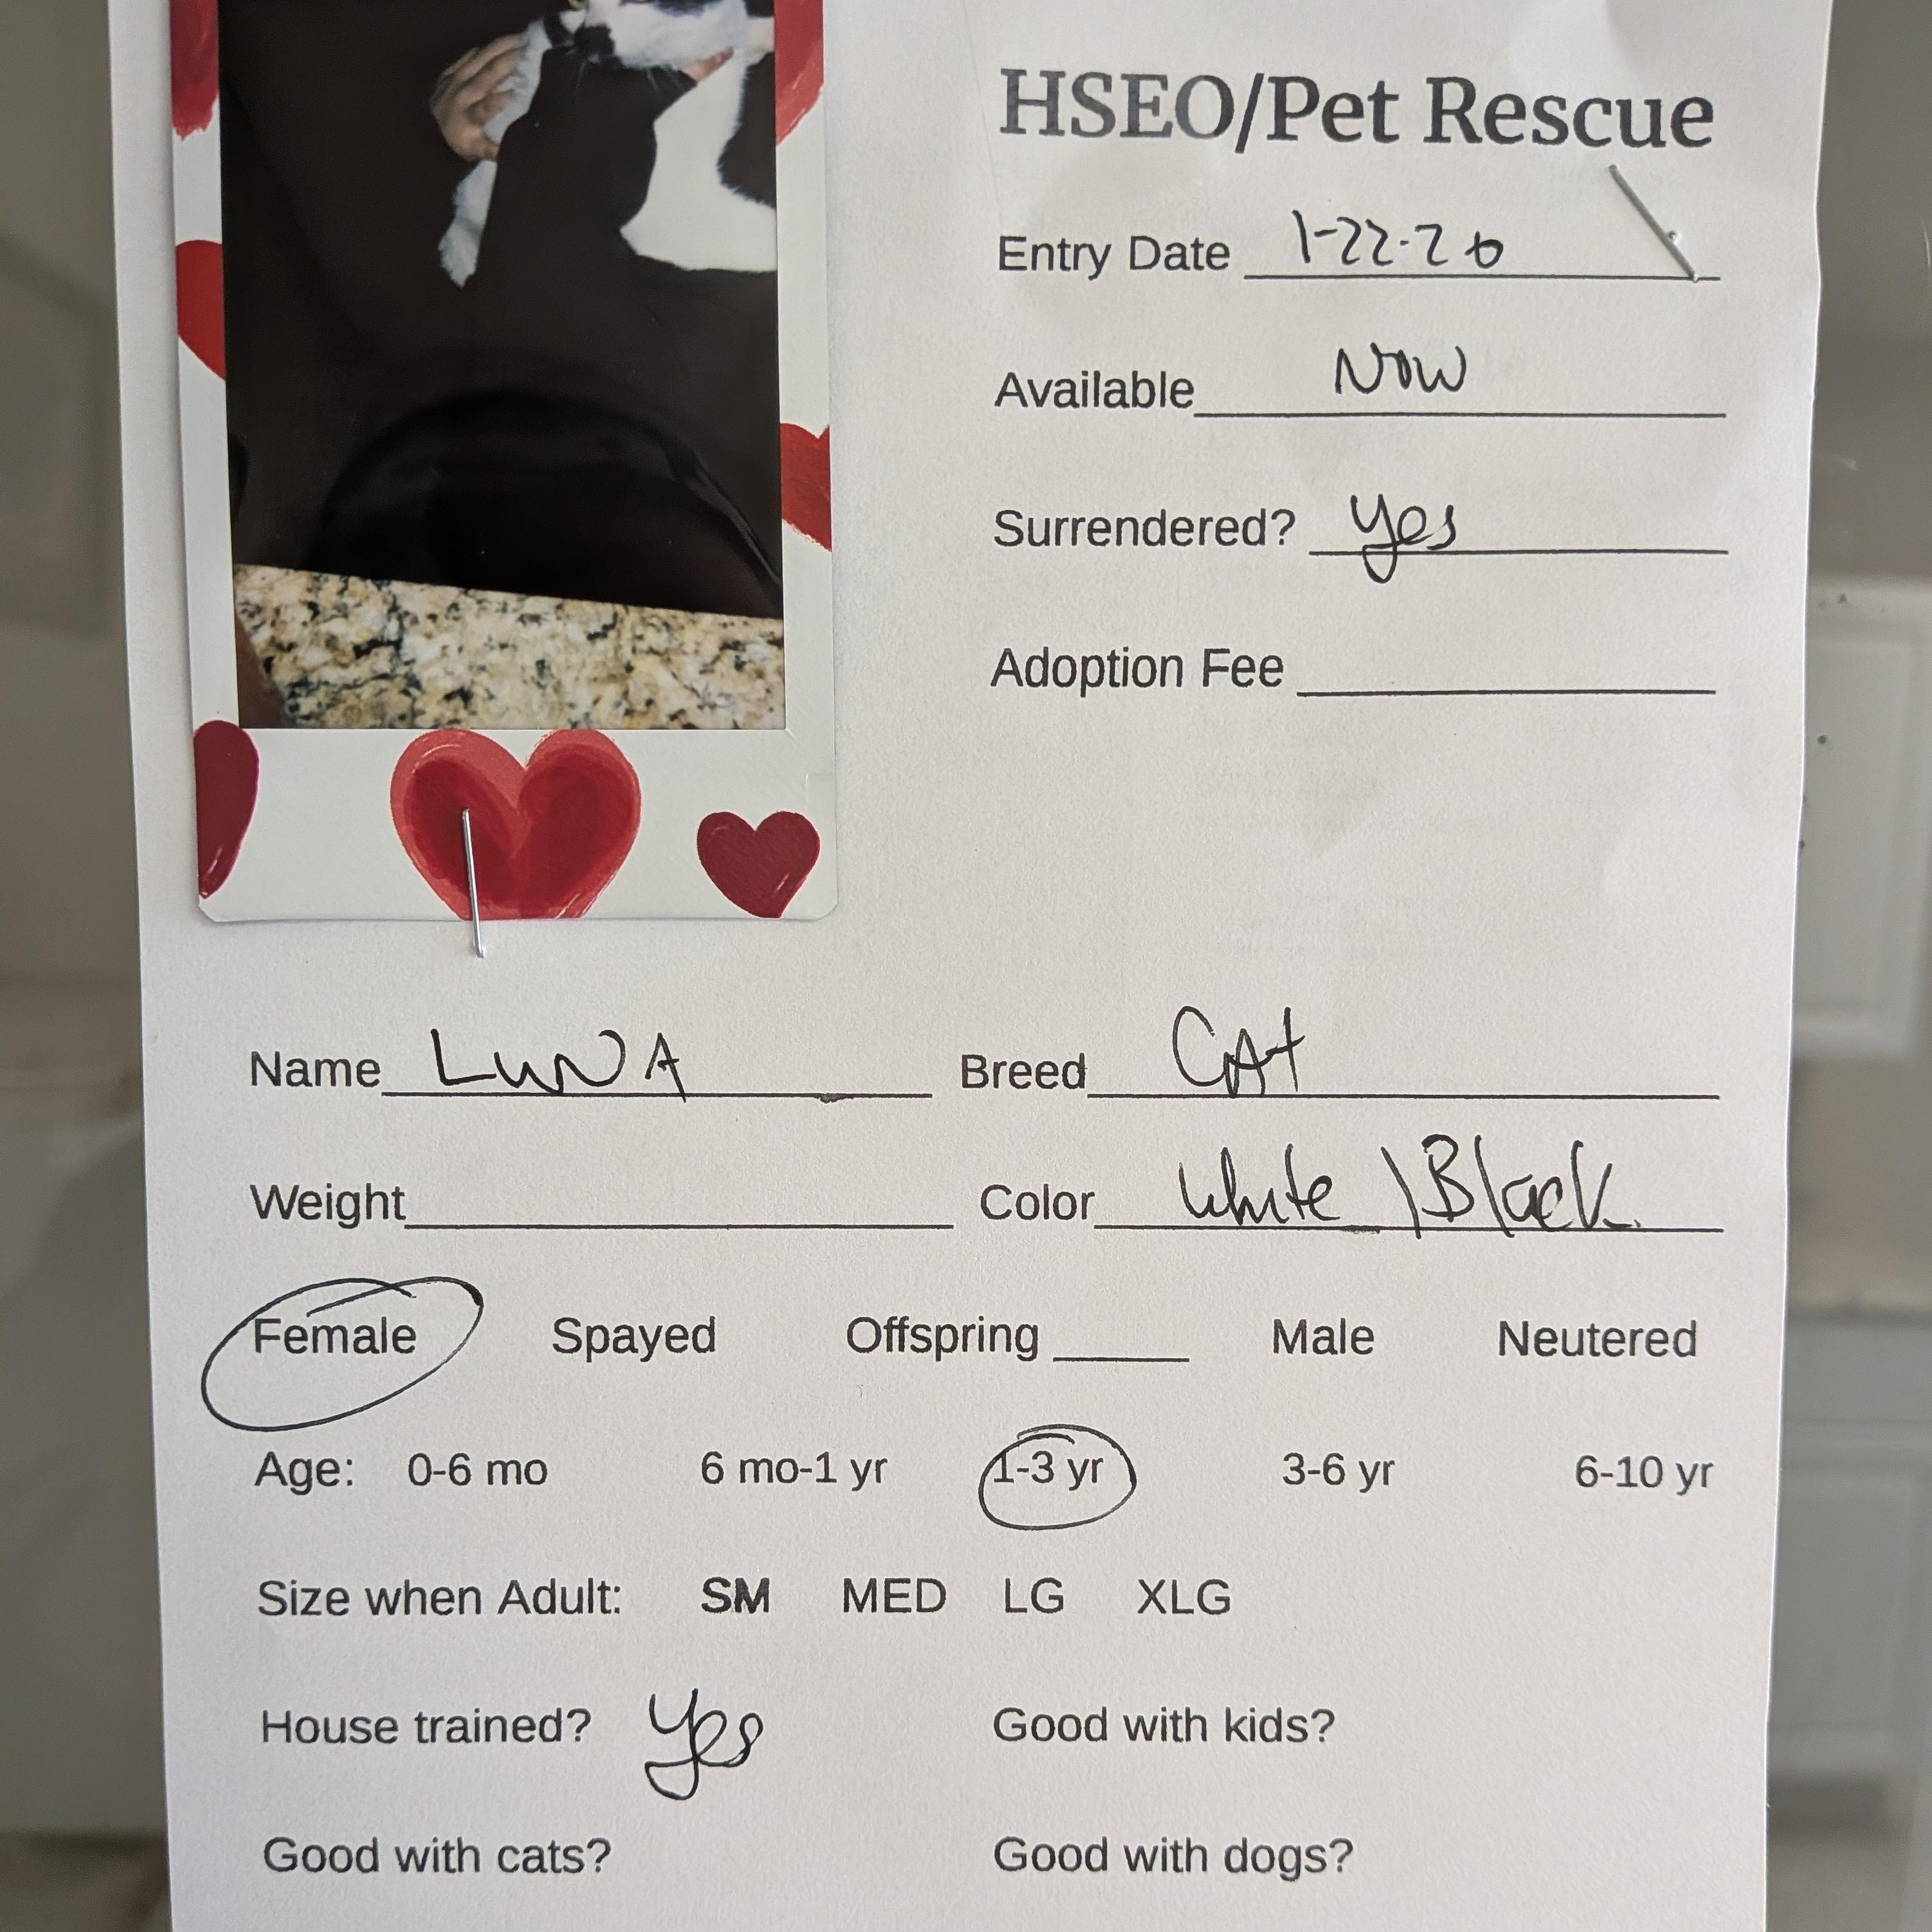 HSEO/Pet Rescue
Entry Date 1-22-26
Available Now
Surrendered? yes
Adoption Fee
Name LUNA Breed CAt
Weight Color white \Black
Female Spayed Offspring Male Neutered
Age: 0-6 mo 6 mo-1 yr 1-3 yr 3-6 yr 6-10 yr
Size when Adult: SM MED LG XLG
House trained? yes Good with kids?
Good with cats? Good with dogs?